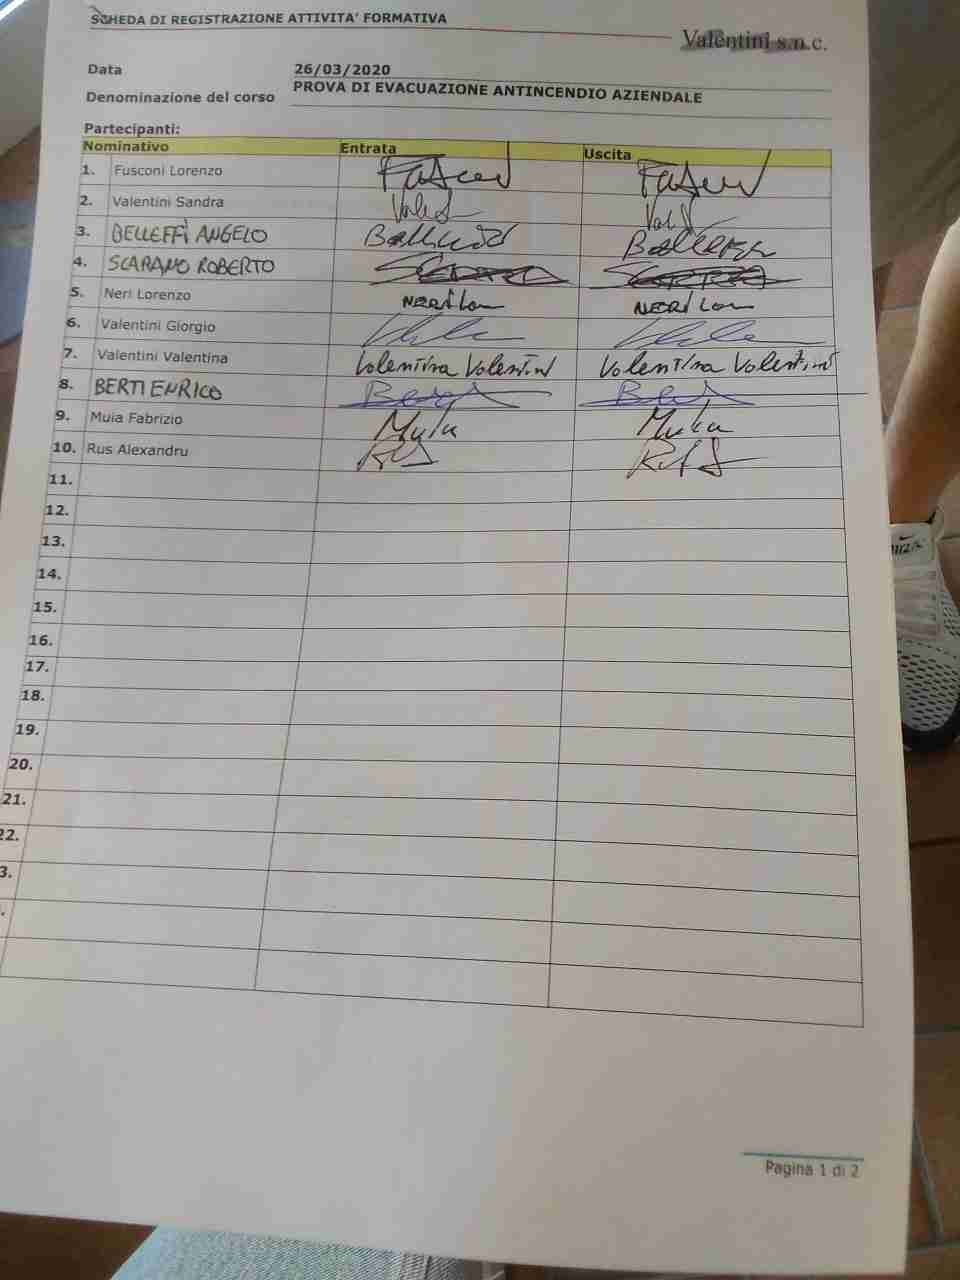 SCHEDA DI REGISTRAZIONE ATTIVITA' FORMATIVA
Valentini s.n.c.
Data 26/03/2020
Denominazione del corso PROVA DI EVACUAZIONE ANTINCENDIO AZIENDALE
Partecipanti:
Nominativo Entrata Uscita
1. Fusconi Lorenzo
2. Valentini Sandra
3. BELLEFFÌ ANGELO
4. SCARANO ROBERTO
5. Neri Lorenzo
6. Valentini Giorgio
7. Valentini Valentina Valentina Valentini Valentina Valentini
8. BERTI ENRICO
9. Muia Fabrizio
10. Rus Alexandru
11.
12.
13.
14.
15.
16.
17.
18.
19.
20.
21.
22.
3.
.
Pagina 1 di 2
MIZA